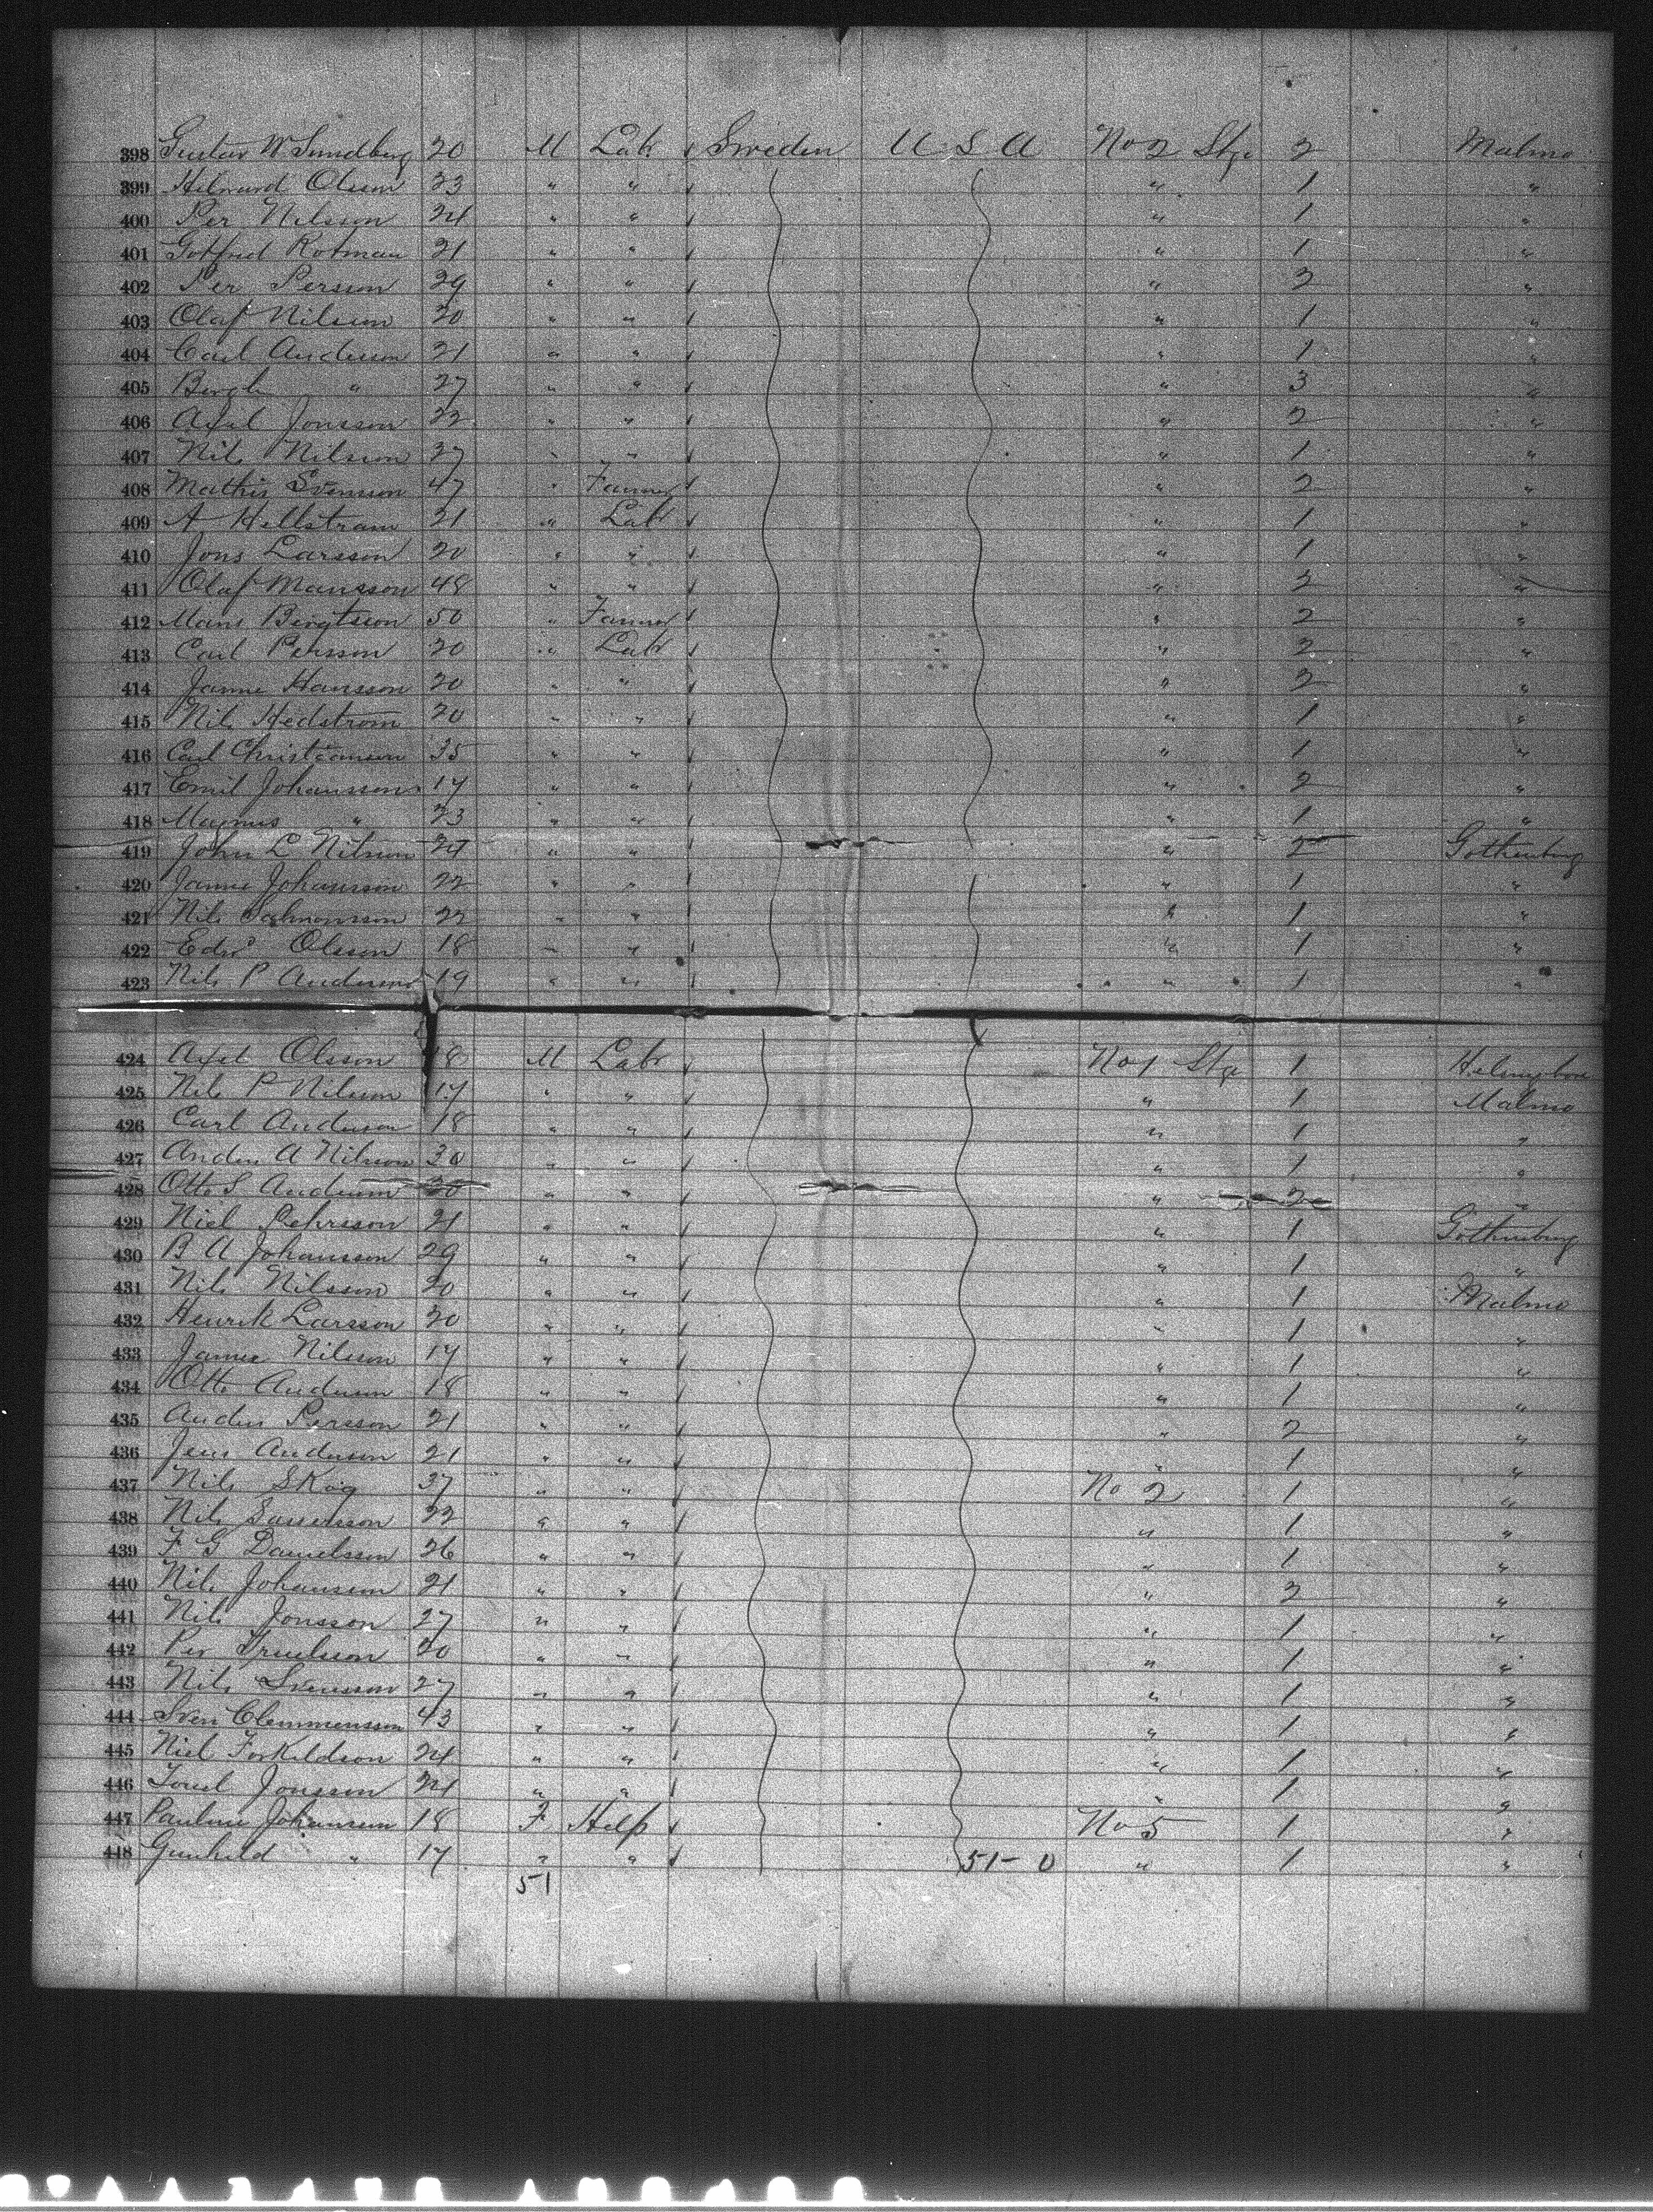 398 Gustav W Sundberg 20 M Labr Sweden U S A No 2 Stge 2 Malmo
399 Olsson 23 " " " 1 "
400 Per Nilsson 24 " " " 1 "
401 Gottfred Rotman 21 " " " 1 "
402 Per Persson 29 " " " 2 "
403 Olaf Nilsson 20 " " " 1 "
404 Carl Anderson 21 " " " 1 "
405 " 27 " " " 3 "
406 Axel Jonsson 22 " " " 2 "
407 Nils Nilsson 27 " " " 1 "
408 Mathis Svensson 47 " Farmer " 2 "
409 A Hellstrom 21 " Labr " 1 "
410 Jons Larsson 20 " " " 1 "
411 Olaf Mansson 48 " " " 2 "
412 Mans Bengtsson 50 " Farmer " 2 "
413 Carl Persson 20 " Labr " 2 "
414 Janne Hansson 20 " " " 2 "
415 Nils Hedstrom 20 " " " 1 "
416 Carl Christiansen 35 " " " 1 "
417 Emil Johansson 17 " " " 2 "
418 Magnus " 23 " " " 1 "
419 John L Nilsson 24 " " " 2 Gothenburg
420 Janne Johansson 22 " " " 1 "
421 Nils Salmonsson 22 " " " 1 "
422 Edwd Olsson 18 " " " 1 "
423 Nils P Anderson 19 " " " 1 "
424 Axel Olsson 18 M Labr No 1 Stge 1
425 Nils P Nilsson 17 " " " 1 Malmo
426 Carl Anderson 18 " " " 1 "
427 Anders A Nilsson 30 " " " 1 "
428 Otto S Anderson 20 " " " 2 "
429 Niel Pehrsson 21 " " " 1 Gothenburg
430 B A Johansson 29 " " " 1 "
431 Nils Nilsson 20 " " " 1 Malmo
432 Henrik Larsson 20 " " " 1 "
433 Janne Nilsson 17 " " " 1 "
434 Otto Anderson 18 " " " 1 "
435 Anders Persson 21 " " " 2 "
436 Jens Anderson 21 " " " 1 "
437 Nils Skog 37 " " No 2 1 "
438 Nils 22 " " " 1 "
439 F G Danielsson 26 " " " 1 "
440 Nils Johansson 21 " " " 2 "
441 Nils Jonsson 27 " " " 1 "
442 Per Truelsson 20 " " " 1 "
443 Nils Svensson 27 " " " 1 "
444 Sven Clemmensson 43 " " " 1 "
445 Niel Torkildson 24 " " " 1 "
446 Jonsson 24 " " " 1 "
447 Pauline Johansson 18 F Help No 5 1 "
448 Gunhild " 17 " " 51-0 " 1 "
51